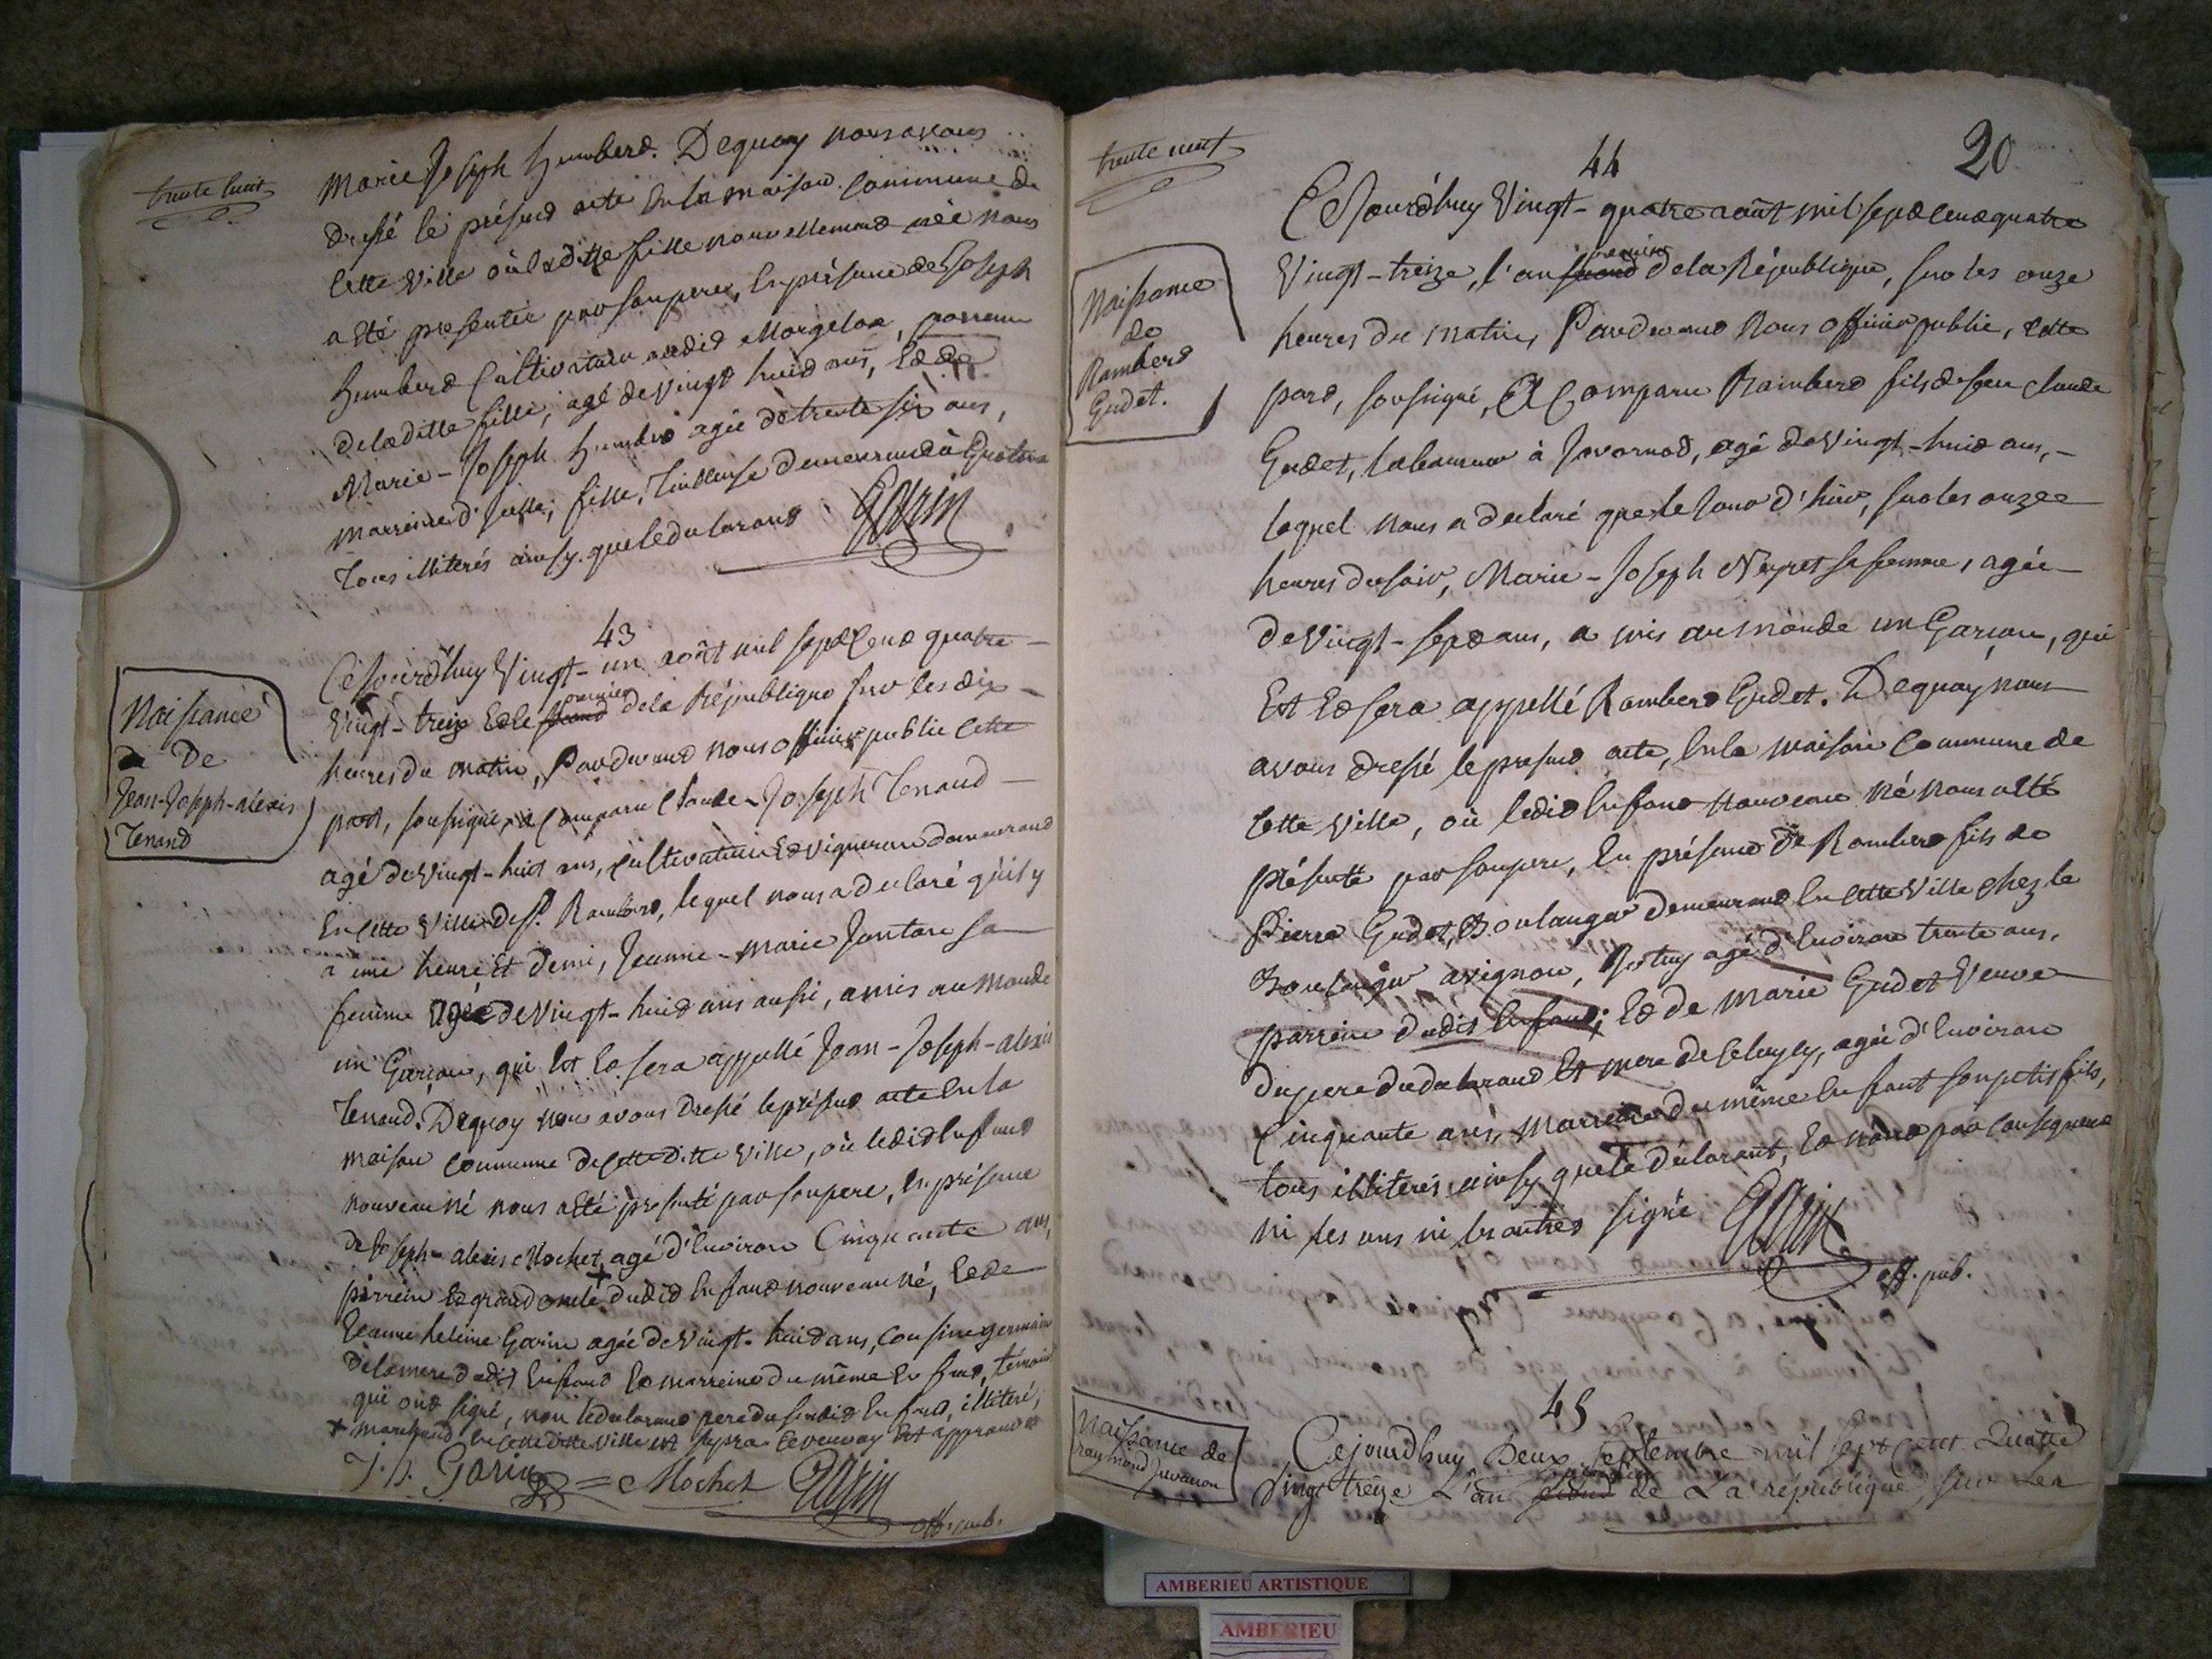 trente huit
Marie Joseph humberd. Dequoy nous avons
dressé le présend acte En la maison Commune de
Cette Ville où la ditte fille nouvellemend née nous
a Eté presentée par son pere, En présence de Joseph
humberd Cultivateur audid Morgelas, parrein
de la ditte fille, agé de Vingt huid ans, Ed de
Marie-Joseph humberd agée de trente six ans,
marreine d'icelle, fille, tailleuse demeurand à
tous illiterés ainsy que le declarand Garin
43
Naissance
de
Jean-Joseph-alexis
Tenand
Cejourd'huy Vingt-un août mil sepd Cend quatre
Vingt-treize Ed le second premier de la République sur les dix
heures du matin, Pardevand nous officier public Cette
pard, soussigné, a Comparu Claude-Joseph Tenand
agé de Vingt-huit ans, Cultivateur Ed Vigneron demeurand
En Cette Ville de St. Ramberd, lequel nous a declaré qu'il y
a une heure Et demi, Jeanne-Marie Juntan sa
femme agée de Vingt-huid ans aussi, a mis au Monde
un Garçon, qui Est Ed sera appellé Jean-Joseph-alexis
Tenand. Dequoy nous avons dressé le présend acte En la
maison Commune de Cette ditte Ville, où ledid Enfand
nouveau né nous a Eté presenté par son pere, En présence
de Joseph-alexis Mochet + agé d'Environ Cinquante ans,
parrein Ed grand oncle dudid Enfand nouveau né, Ed de
Jeanne heleine Garin agée de Vingt-huid ans, Cousine germaine
de la mere dudid Enfand Ed marreine du même Enfand, temoins
qui ond signé, non le declarand pere du susdid Enfand, illiteré,
+ marchand En Cette ditte Ville Est supra le renvoy Est approuvé
J. h. Garin = Mochet Garin
off. pub.
trente neuf
20
44
Naissance
de
Ramberd
Gudet.
Cejourd'huy Vingt-quatre août mil sepd Cend quatre
Vingt-treize, l'an second premier de la République, sur les onze
heures du matin, Pardevand Nous officier public, Cette
pard, soussigné, A Comparu Ramberd fils de feu Claude
Gudet, laboureur à Javornod, agé de Vingt-huid ans,
lequel nous a declaré que le Jour d'hier, sur les onze
heures du soir, Marie-Joseph Neyret sa femme, agée
de Vingt-sepd ans, a mis au monde un Garçon, qui
Est Ed sera appellé Ramberd Gudet. Dequoy nous
avons dressé le presend acte, En la maison Commune de
Cette Ville, où ledid Enfand nouveau né nous a Eté
présenté par son pere, En présence de Ramberd fils de
Pierre Gudet, Boulanger demeurand En Cette Ville chez le
Boulanger avignon, agé d'Environ trente ans,
parrein dudit Enfand; Ed de Marie Gudet Veuve
du pere du declarand Et mere de Celuy cy, agée d'Environ
Cinquante ans, Marreine du même Enfant son petit fils,
tous illiterés ainsy que le déclarant, Ed n'ond par Consequend
ni les uns ni les autres signé Garin
off. pub.
45
Naissance de
raymond Juvanon
Cejourdhuy Deux Septembre mil Sept Cent Quatre
Vingt treize L'an second premier de La république, sur Les
AMBERIEU ARTISTIQUE
AMBERIEU